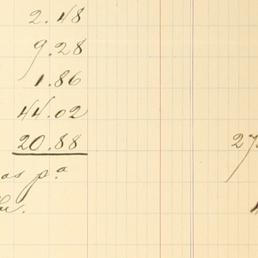 2.48
9.28
1.86
44.02
20.88
as p.a
27